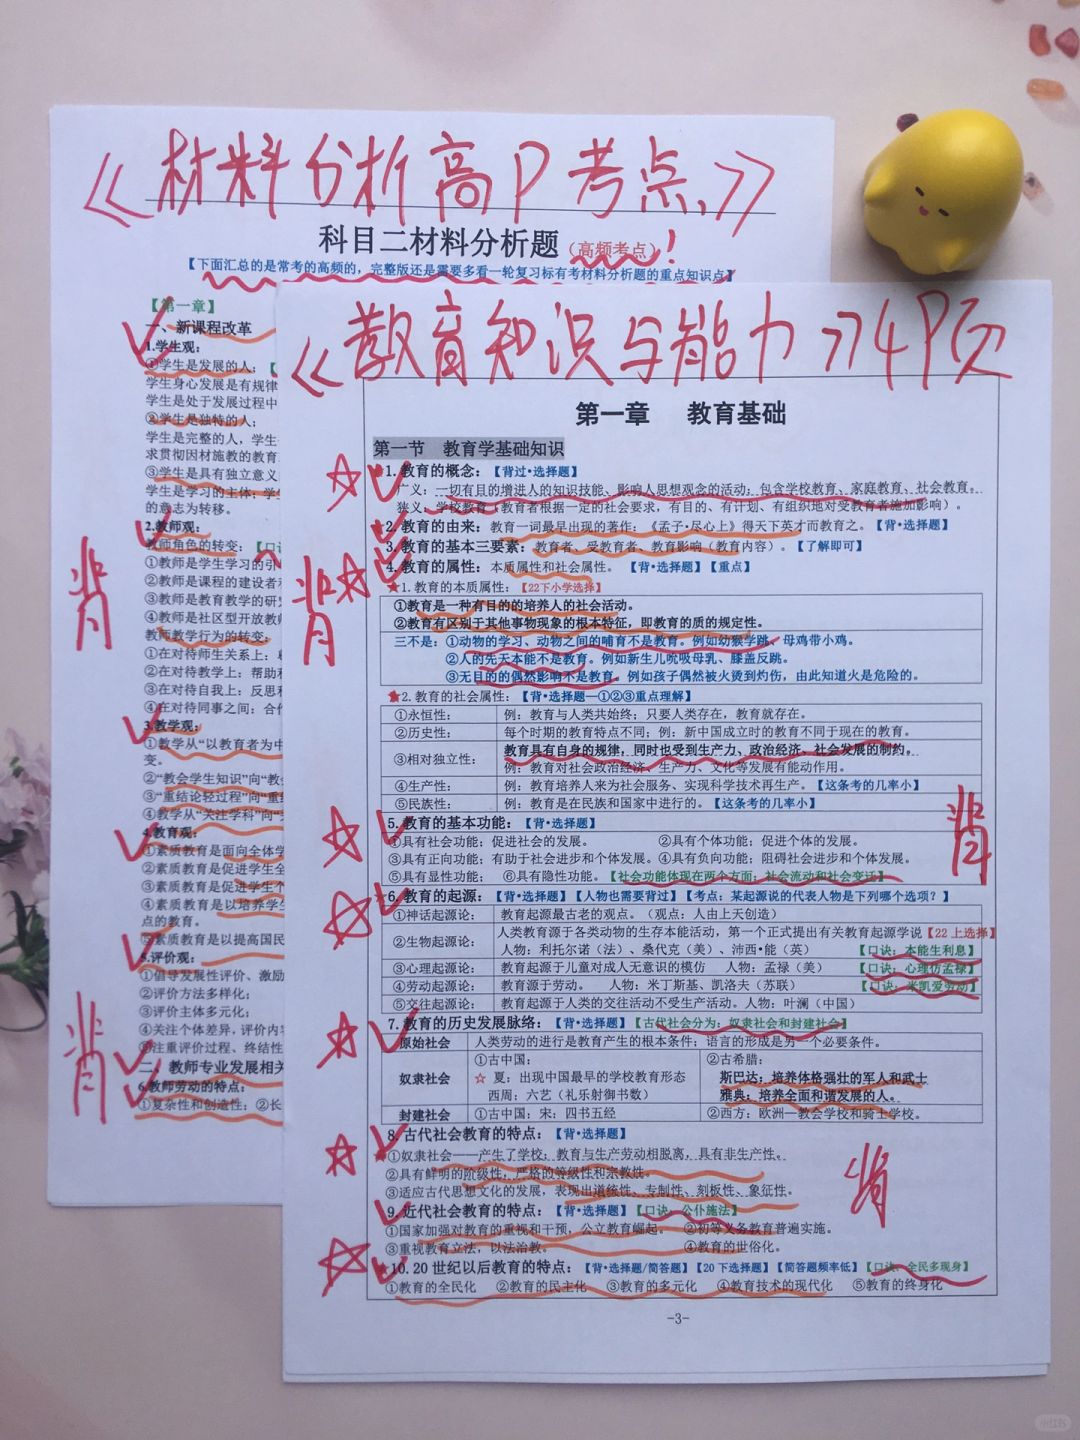 《材料分析高P考点》
科目二材料分析题（高频考点）！
【下面汇总的是常考的高频的，完整版还是需要多看一轮复习标有考材料分析题的重点知识点】
【第一章】
一、新课程改革
1.学生观：
①学生是发展的人；【
学生身心发展是有规律
学生是处于发展过程中
②学生是独特的人；
学生是完整的人，学生
求贯彻因材施教的教育
③学生是具有独立意义
学生是学习的主体；学生
的意志为转移。
2.教师观：
教师角色的转变：【口诀
①教师是学生学习的引
②教师是课程的建设者和
③教师是教育教学的研究
④教师是社区型开放教师
教师教学行为的转变：
①在对待师生关系上：
②在对待教学上：帮助
③在对待自我上：反思
④在对待同事之间：合作
3.教学观：
①教学从“以教育者为中
变。
②“教会学生知识”向“教
③“重结论轻过程”向“重结
④教学从“关注学科”向“
4.教育观：
①素质教育是面向全体学
②素质教育是促进学生全
③素质教育是促进学生个
④素质教育是以培养学生
点的教育。
⑤素质教育是以提高国民
5.评价观：
①倡导发展性评价、激励
②评价方法多样化；
③评价主体多元化；
④关注个体差异，评价内容
⑤注重评价过程、终结性
二、教师专业发展相关
6.教师劳动的特点：
①复杂性和创造性；②长
背
背
《教育知识与能力》74P页
第一章 教育基础
第一节 教育学基础知识
1.教育的概念：【背过•选择题】
广义：一切有目的增进人的知识技能、影响人思想观念的活动；包含学校教育、家庭教育、社会教育。
狭义：学校教育（教育者根据一定的社会要求，有目的、有计划、有组织地对受教育者施加影响）。
★2.教育的由来：教育一词最早出现的著作：《孟子•尽心上》得天下英才而教育之。【背•选择题】
3.教育的基本三要素：教育者、受教育者、教育影响（教育内容）。【了解即可】
4.教育的属性：本质属性和社会属性。【背•选择题】【重点】
背
★1.教育的本质属性：【22下小学选择】
①教育是一种有目的的培养人的社会活动。
②教育有区别于其他事物现象的根本特征，即教育的质的规定性。
三不是：①动物的学习、动物之间的哺育不是教育。例如幼猴学跳、母鸡带小鸡。
②人的先天本能不是教育。例如新生儿吮吸母乳、膝盖反跳。
③无目的的偶然影响不是教育。例如孩子偶然被火烫到灼伤，由此知道火是危险的。
★2.教育的社会属性：【背•选择题—①②③重点理解】
①永恒性： 例：教育与人类共始终；只要人类存在，教育就存在。
②历史性： 每个时期的教育特点不同；例：新中国成立时的教育不同于现在的教育。
③相对独立性： 教育具有自身的规律，同时也受到生产力、政治经济、社会发展的制约。
例：教育对社会政治经济、生产力、文化等发展有能动作用。
④生产性： 例：教育培养人来为社会服务、实现科学技术再生产。【这条考的几率小】
⑤民族性： 例：教育是在民族和国家中进行的。【这条考的几率小】
5.教育的基本功能：【背•选择题】
①具有社会功能；促进社会的发展。 ②具有个体功能；促进个体的发展。
③具有正向功能；有助于社会进步和个体发展。④具有负向功能；阻碍社会进步和个体发展。
⑤具有显性功能； ⑥具有隐性功能。【社会功能体现在两个方面：社会流动和社会变迁】
背
★6.教育的起源：【背•选择题】【人物也需要背过】【考点：某起源说的代表人物是下列哪个选项？】
①神话起源论： 教育起源最古老的观点。（观点：人由上天创造）
②生物起源论： 人类教育源于各类动物的生存本能活动，第一个正式提出有关教育起源学说【22上选择】
人物：利托尔诺（法）、桑代克（美）、沛西•能（英） 【口诀：本能生利息】
③心理起源论： 教育起源于儿童对成人无意识的模仿 人物：孟禄（美） 【口诀：心理仿孟禄】
④劳动起源论： 教育源于劳动。 人物：米丁斯基、凯洛夫（苏联） 【口诀：米凯爱劳动】
⑤交往起源论： 教育起源于人类的交往活动不受生产活动。人物：叶澜（中国）
7.教育的历史发展脉络：【背•选择题】【古代社会分为：奴隶社会和封建社会】
原始社会 人类劳动的进行是教育产生的根本条件；语言的形成是另一个必要条件。
奴隶社会 ①古中国： ②古希腊：
☆ 夏：出现中国最早的学校教育形态 斯巴达：培养体格强壮的军人和武士
西周：六艺（礼乐射御书数） 雅典：培养全面和谐发展的人。
封建社会 ①古中国：宋：四书五经 ②西方：欧洲—教会学校和骑士学校。
8.古代社会教育的特点：【背•选择题】
①奴隶社会——产生了学校，教育与生产劳动相脱离，具有非生产性。
②具有鲜明的阶级性，严格的等级性和宗教性。
③适应古代思想文化的发展，表现出道统性、专制性、刻板性、象征性。
背
9.近代社会教育的特点：【背•选择题】【口诀：公仆施法】
①国家加强对教育的重视和干预，公立教育崛起。 ②初等义务教育普遍实施。
③重视教育立法，以法治教。 ④教育的世俗化。
★10.20世纪以后教育的特点：【背•选择题/简答题】【20下选择题】【简答题频率低】【口诀：全民多现身】
①教育的全民化 ②教育的民主化 ③教育的多元化 ④教育技术的现代化 ⑤教育的终身化
-3-
小红书